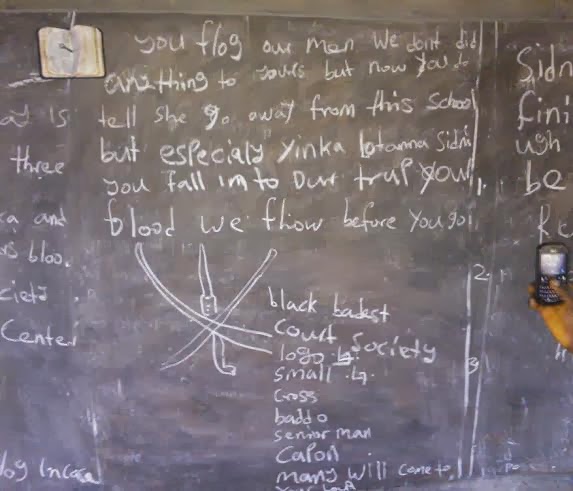 you flog our men we dont did
anything to yours but now you
tell she go away from this school
but especialy yinka Lotanna Sidni
you fall in to Our trap you
blood we flow before you go
black badest
Court Society
logo
small
Cross
baddo
sennor man
Capon
many will come to
Sidn
fini
ugh
be
Re
2.
3
is
three
and
bloo.
ciety
Center
log Incase